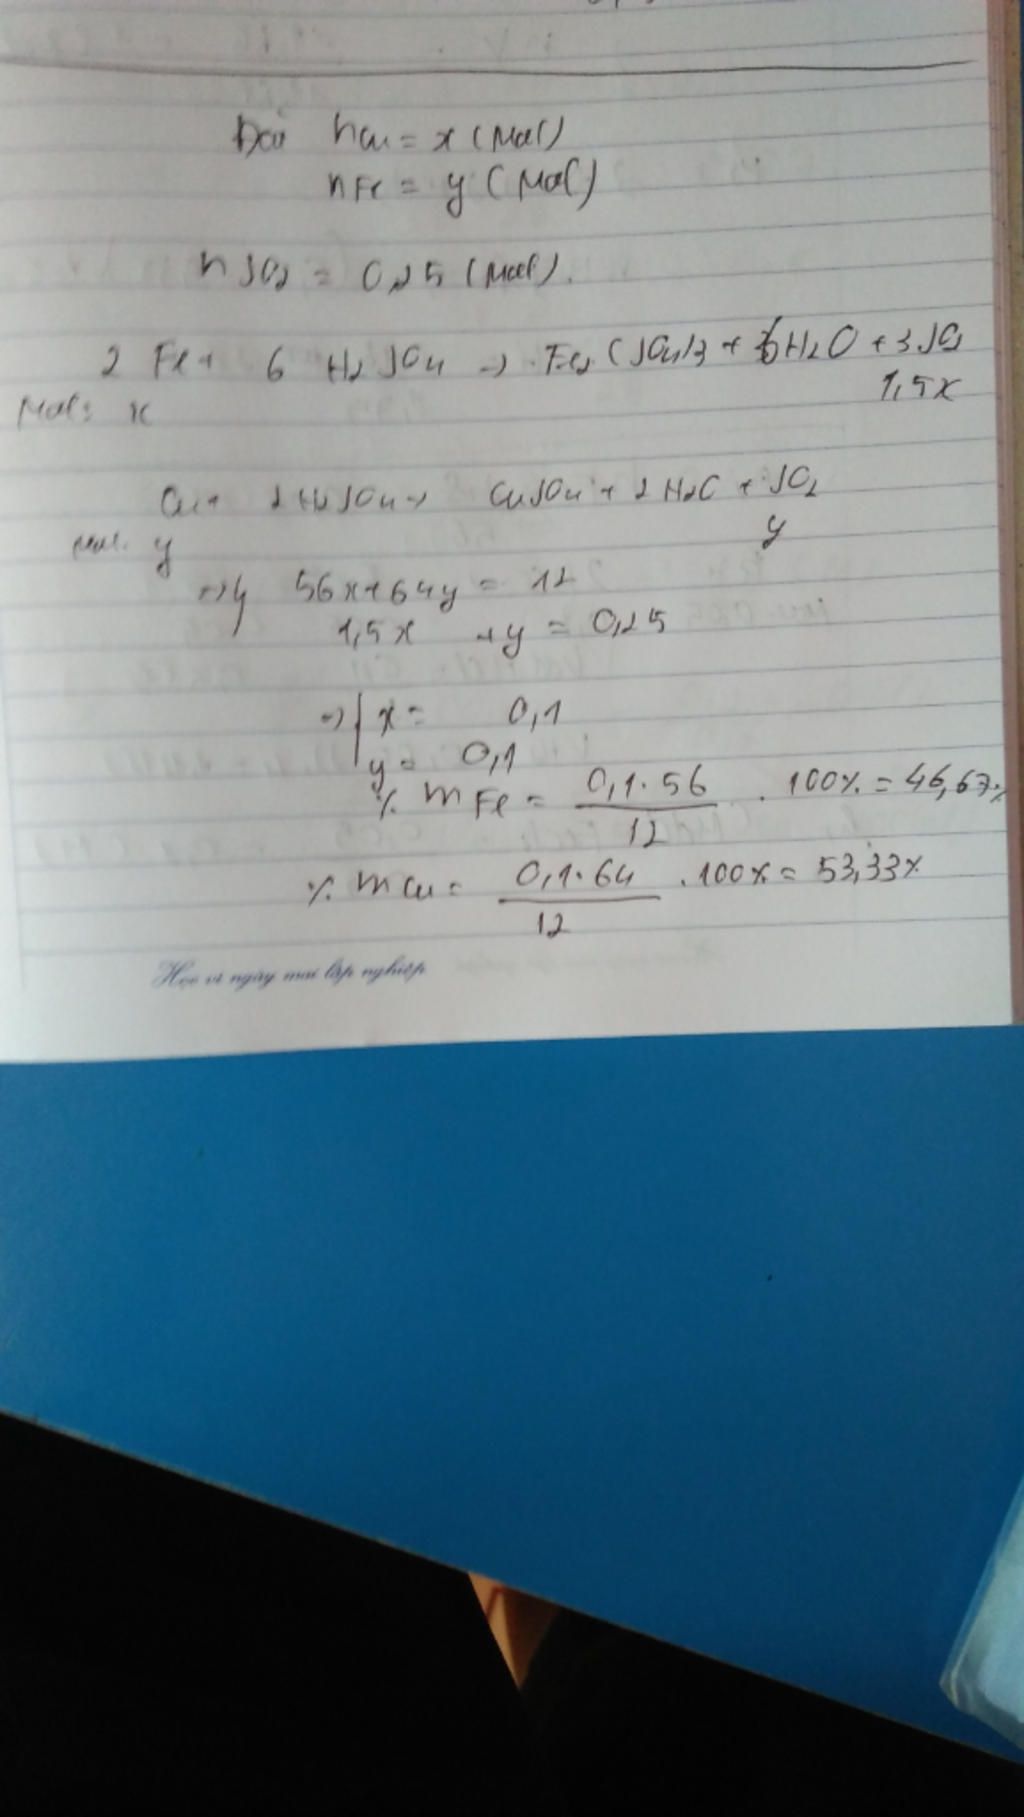 nCu = x (Mol)
nFe = y (Mol)
nSO2 = 0,25 (Mol).
2 Fe + 6 H2SO4 → Fe2(SO4)3 + 6H2O + 3SO2
Mol: x 1,5x
Cu + 2H2SO4 → CuSO4 + 2H2O + SO2
Mol. y y
=> { 56x + 64y = 12
1,5x + y = 0,25
=> { x = 0,1
y = 0,1
% mFe = 0,1.56 / 12 . 100% = 46,67%
% mCu = 0,1.64 / 12 . 100% = 53,33%
Học vì ngày mai lập nghiệp